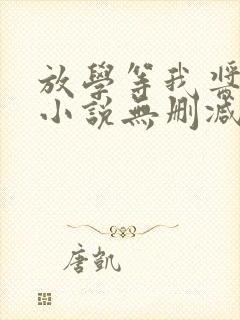 放學等我 醬
小説無刪減
唐凱